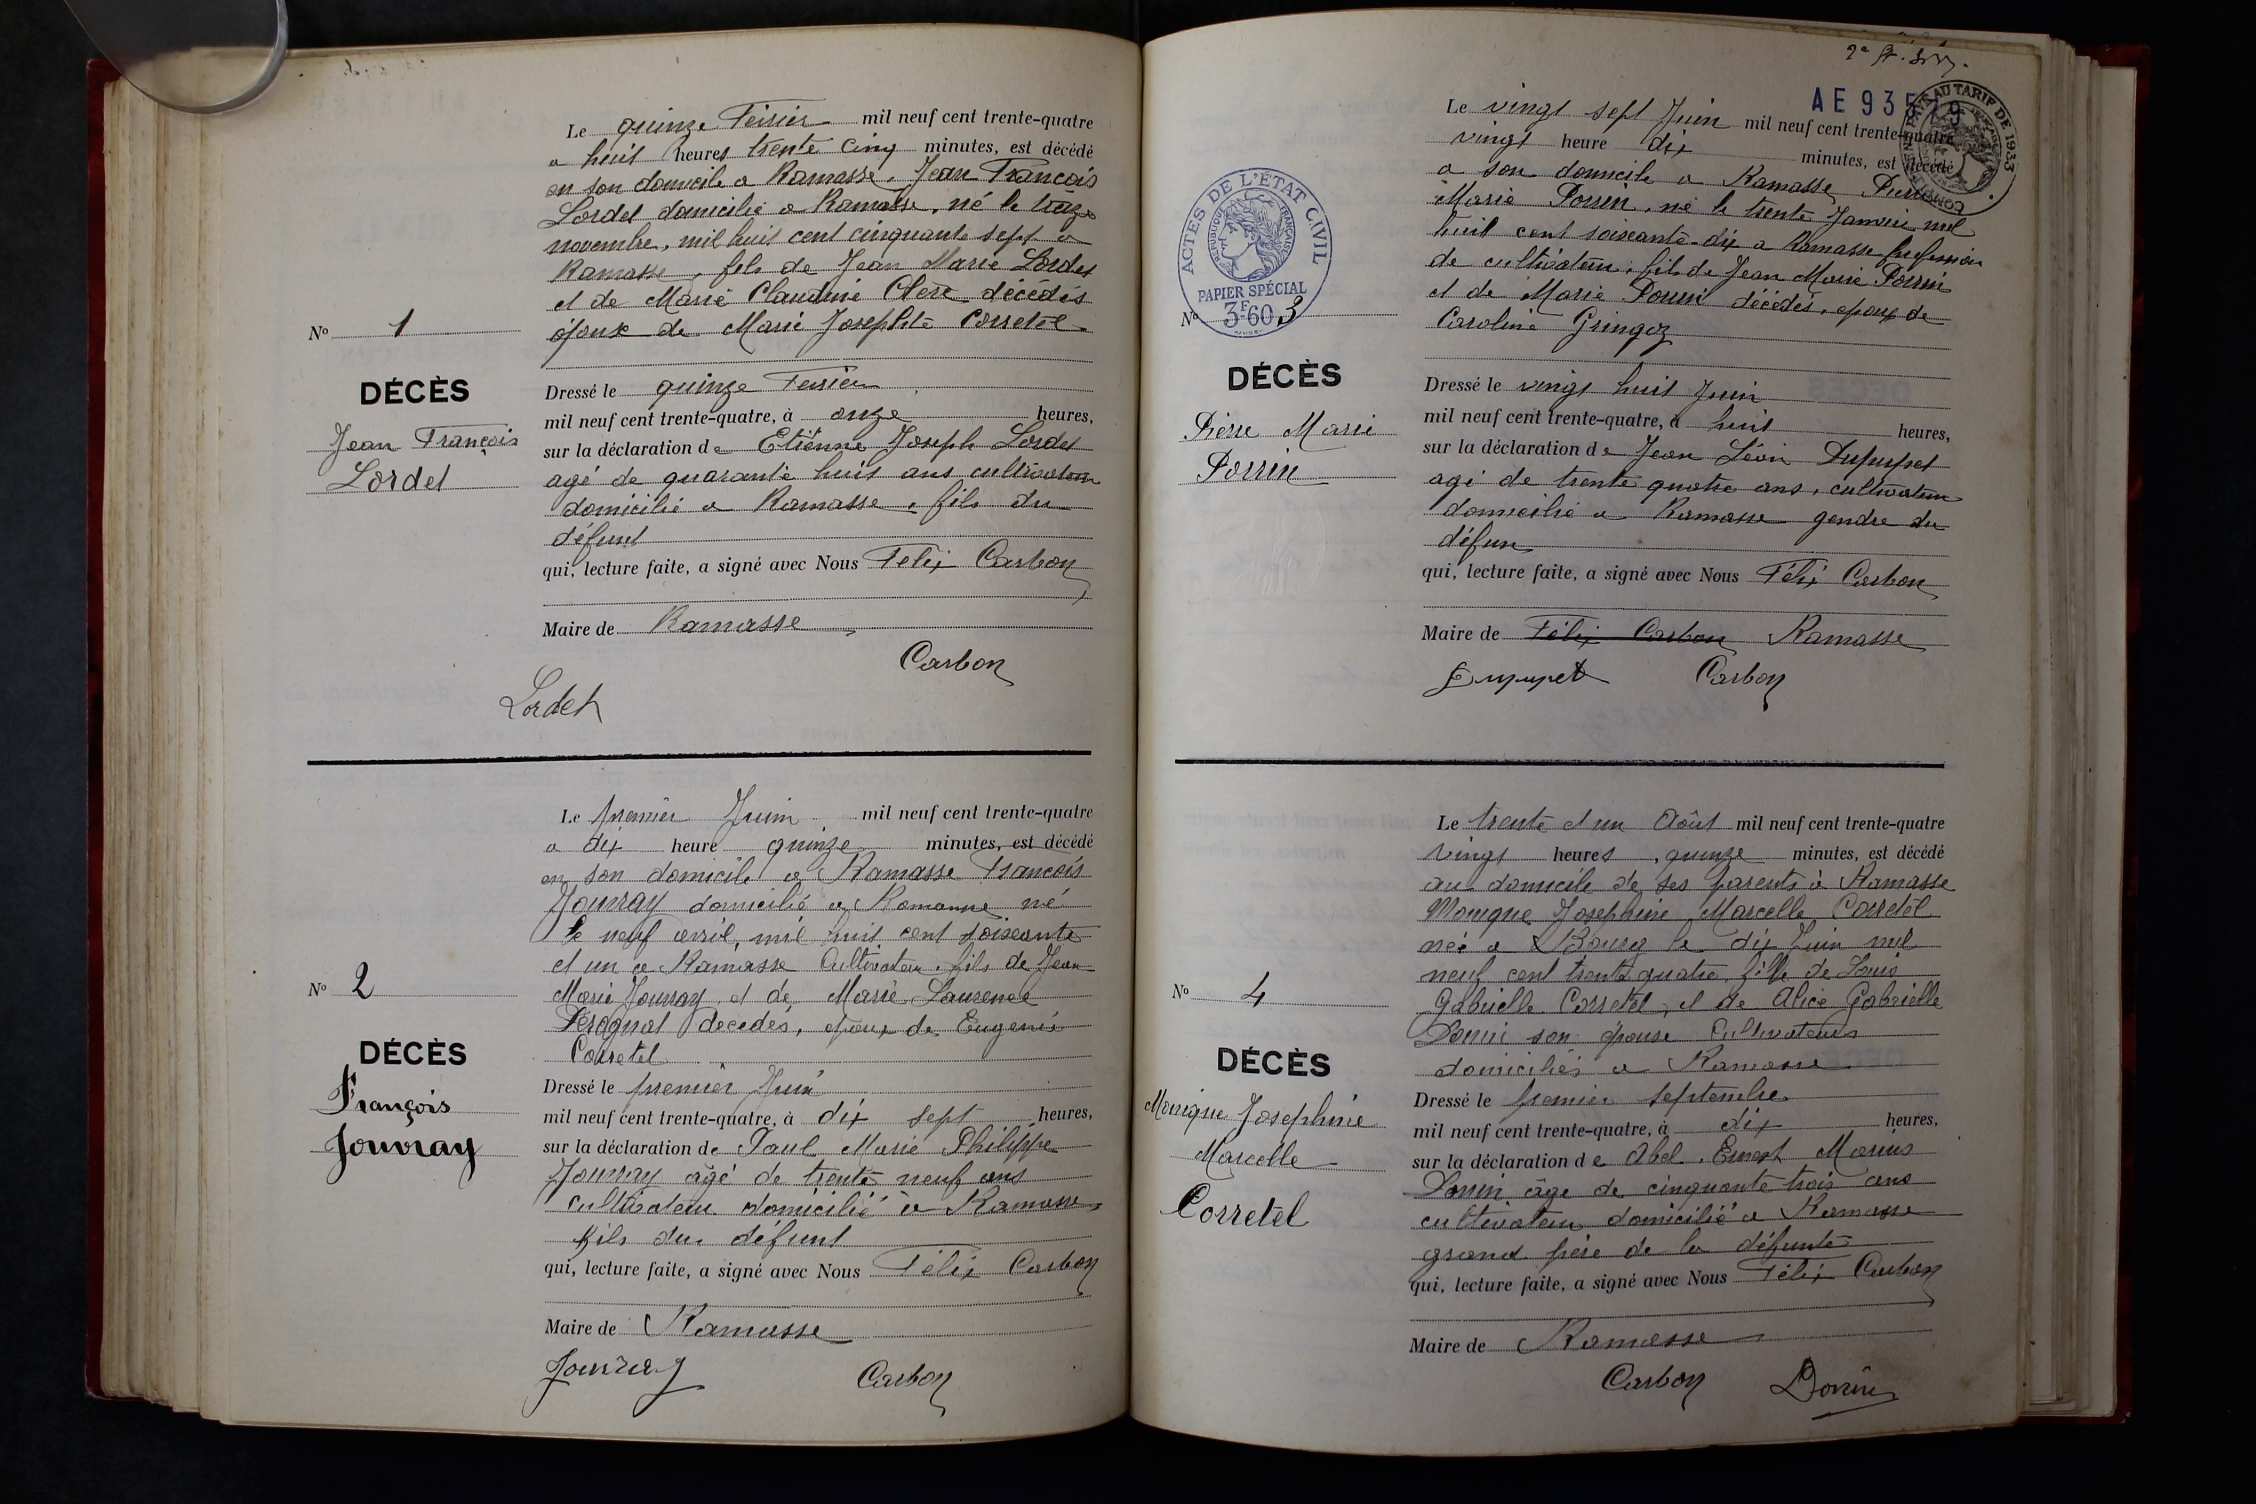 Le quinze Février mil neuf cent trente-quatre
a huit heures trente cinq minutes, est décédé
en son domicile a Ramasse, Jean François
Lordet domicilié a Ramasse, né le treize
novembre, mil huit cent cinquante sept a
Ramasse, fils de Jean Marie Lordet
et de Marie Claudine Clerc décédés
époux de Marie Josephte Corretel
No 1
DÉCÈS
Jean François
Lordet
Dressé le quinze Fevrier
mil neuf cent trente-quatre, à onze heures,
sur la déclaration de Etiénne Joseph Lordet
agé de quarante huit ans cultivateur
domicilié a Ramasse, fils du
défunt
qui, lecture faite, a signé avec Nous Félix Carbon
Maire de Ramasse
Carbon
Lordet
Le premier Juin mil neuf cent trente-quatre
a dix heure quinze minutes, est décédé
en son domicile a Ramasse François
Jouvray domicilié a Ramasse né
le neuf avril, mil huit cent soixante
et un a Ramasse Cultivateur, fils de Jean
Marie Jouvray et de Marie Laurence
décédés, époux de Eugenie
Corretel
No 2
DÉCÈS
François
Jouvray
Dressé le premier Juin
mil neuf cent trente-quatre, à dix sept heures,
sur la déclaration de Paul Marie Philippe
Jouvray agé de trente neuf ans
cultivateur domicilié à Ramasse
fils du défunt
qui, lecture faite, a signé avec Nous Félix Carbon
Maire de Ramasse
Jouvray Carbon
AE 93579
PAYÉ AU TARIF DE 1933
Le vingt sept Juin mil neuf cent trente-quatre
vingt heure dix minutes, est décédé
a son domicile a Ramasse Pierre
Marie Porrin, né le trente Janvier mil
huit cent soixante-dix a Ramasse profession
de cultivateur, fils de Jean Marie Porrin
et de Marie Porrin décédés, époux de
Caroline Gringoz
ACTES DE L'ÉTAT CIVIL
REPUBLIQUE FRANÇAISE
PAPIER SPÉCIAL
3F60
No 3
DÉCÈS
Pierre Marie
Porrin
Dressé le vingt huit Juin
mil neuf cent trente-quatre, à huit heures,
sur la déclaration de Jean Léon Dupupet
agé de trente quatre ans, cultivateur
domicilié a Ramasse gendre du
défun
qui, lecture faite, a signé avec Nous Félix Carbon
Maire de Félix Carbon Ramasse
Dupupet Carbon
Le trente et un Août mil neuf cent trente-quatre
vingt heures, quinze minutes, est décédé
au domicile de ses parents à Ramasse
Monique Josephine Marcelle Corretel
née a Bourg le dix Juin mil
neuf cent trente quatre fille de Louis
Gabrielle Corretel, et de Alice Gabrielle
son épouse Cultivateurs
domiciliés a Ramasse
No 4
DÉCÈS
Monique Josephine
Marcelle
Corretel
Dressé le premier septembre
mil neuf cent trente-quatre, à dix heures,
sur la déclaration de Abel, Ernest Marius
âge de cinquante trois ans
cultivateur domicilié a Ramasse
grand père de la défunte
qui, lecture faite, a signé avec Nous Félix Carbon
Maire de Ramasse
Carbon